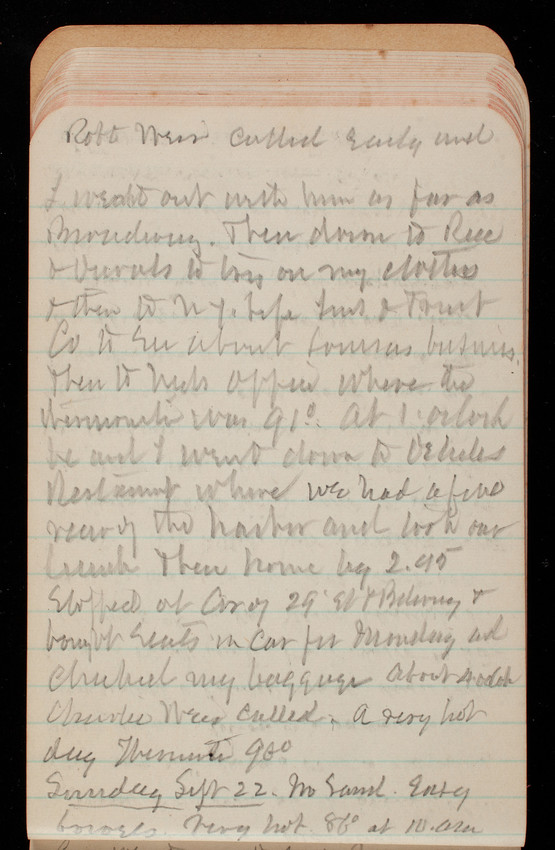 Robt Weir called early and
I went out with him as far as
Broadway. Then down to
& to try on my clothes
& then to N.Y. Life Ins & Trust
Co to see about business.
Then to Neds Office where the
thermomtr was 91°. At 1 oclock
he and I went down to
Restaurant where we had a fine
view of the harbor and took our
lunch Then home by 2.45
Stopped at Cor of 29 St & Bdway &
bought seats in car for Monday and
checked my baggage about 4 oclock
Charlie Weir called. A very hot
day Thermomtr 90°
Sunday Sept 22. No Sand. Early
Very hot. 86° at 10 am